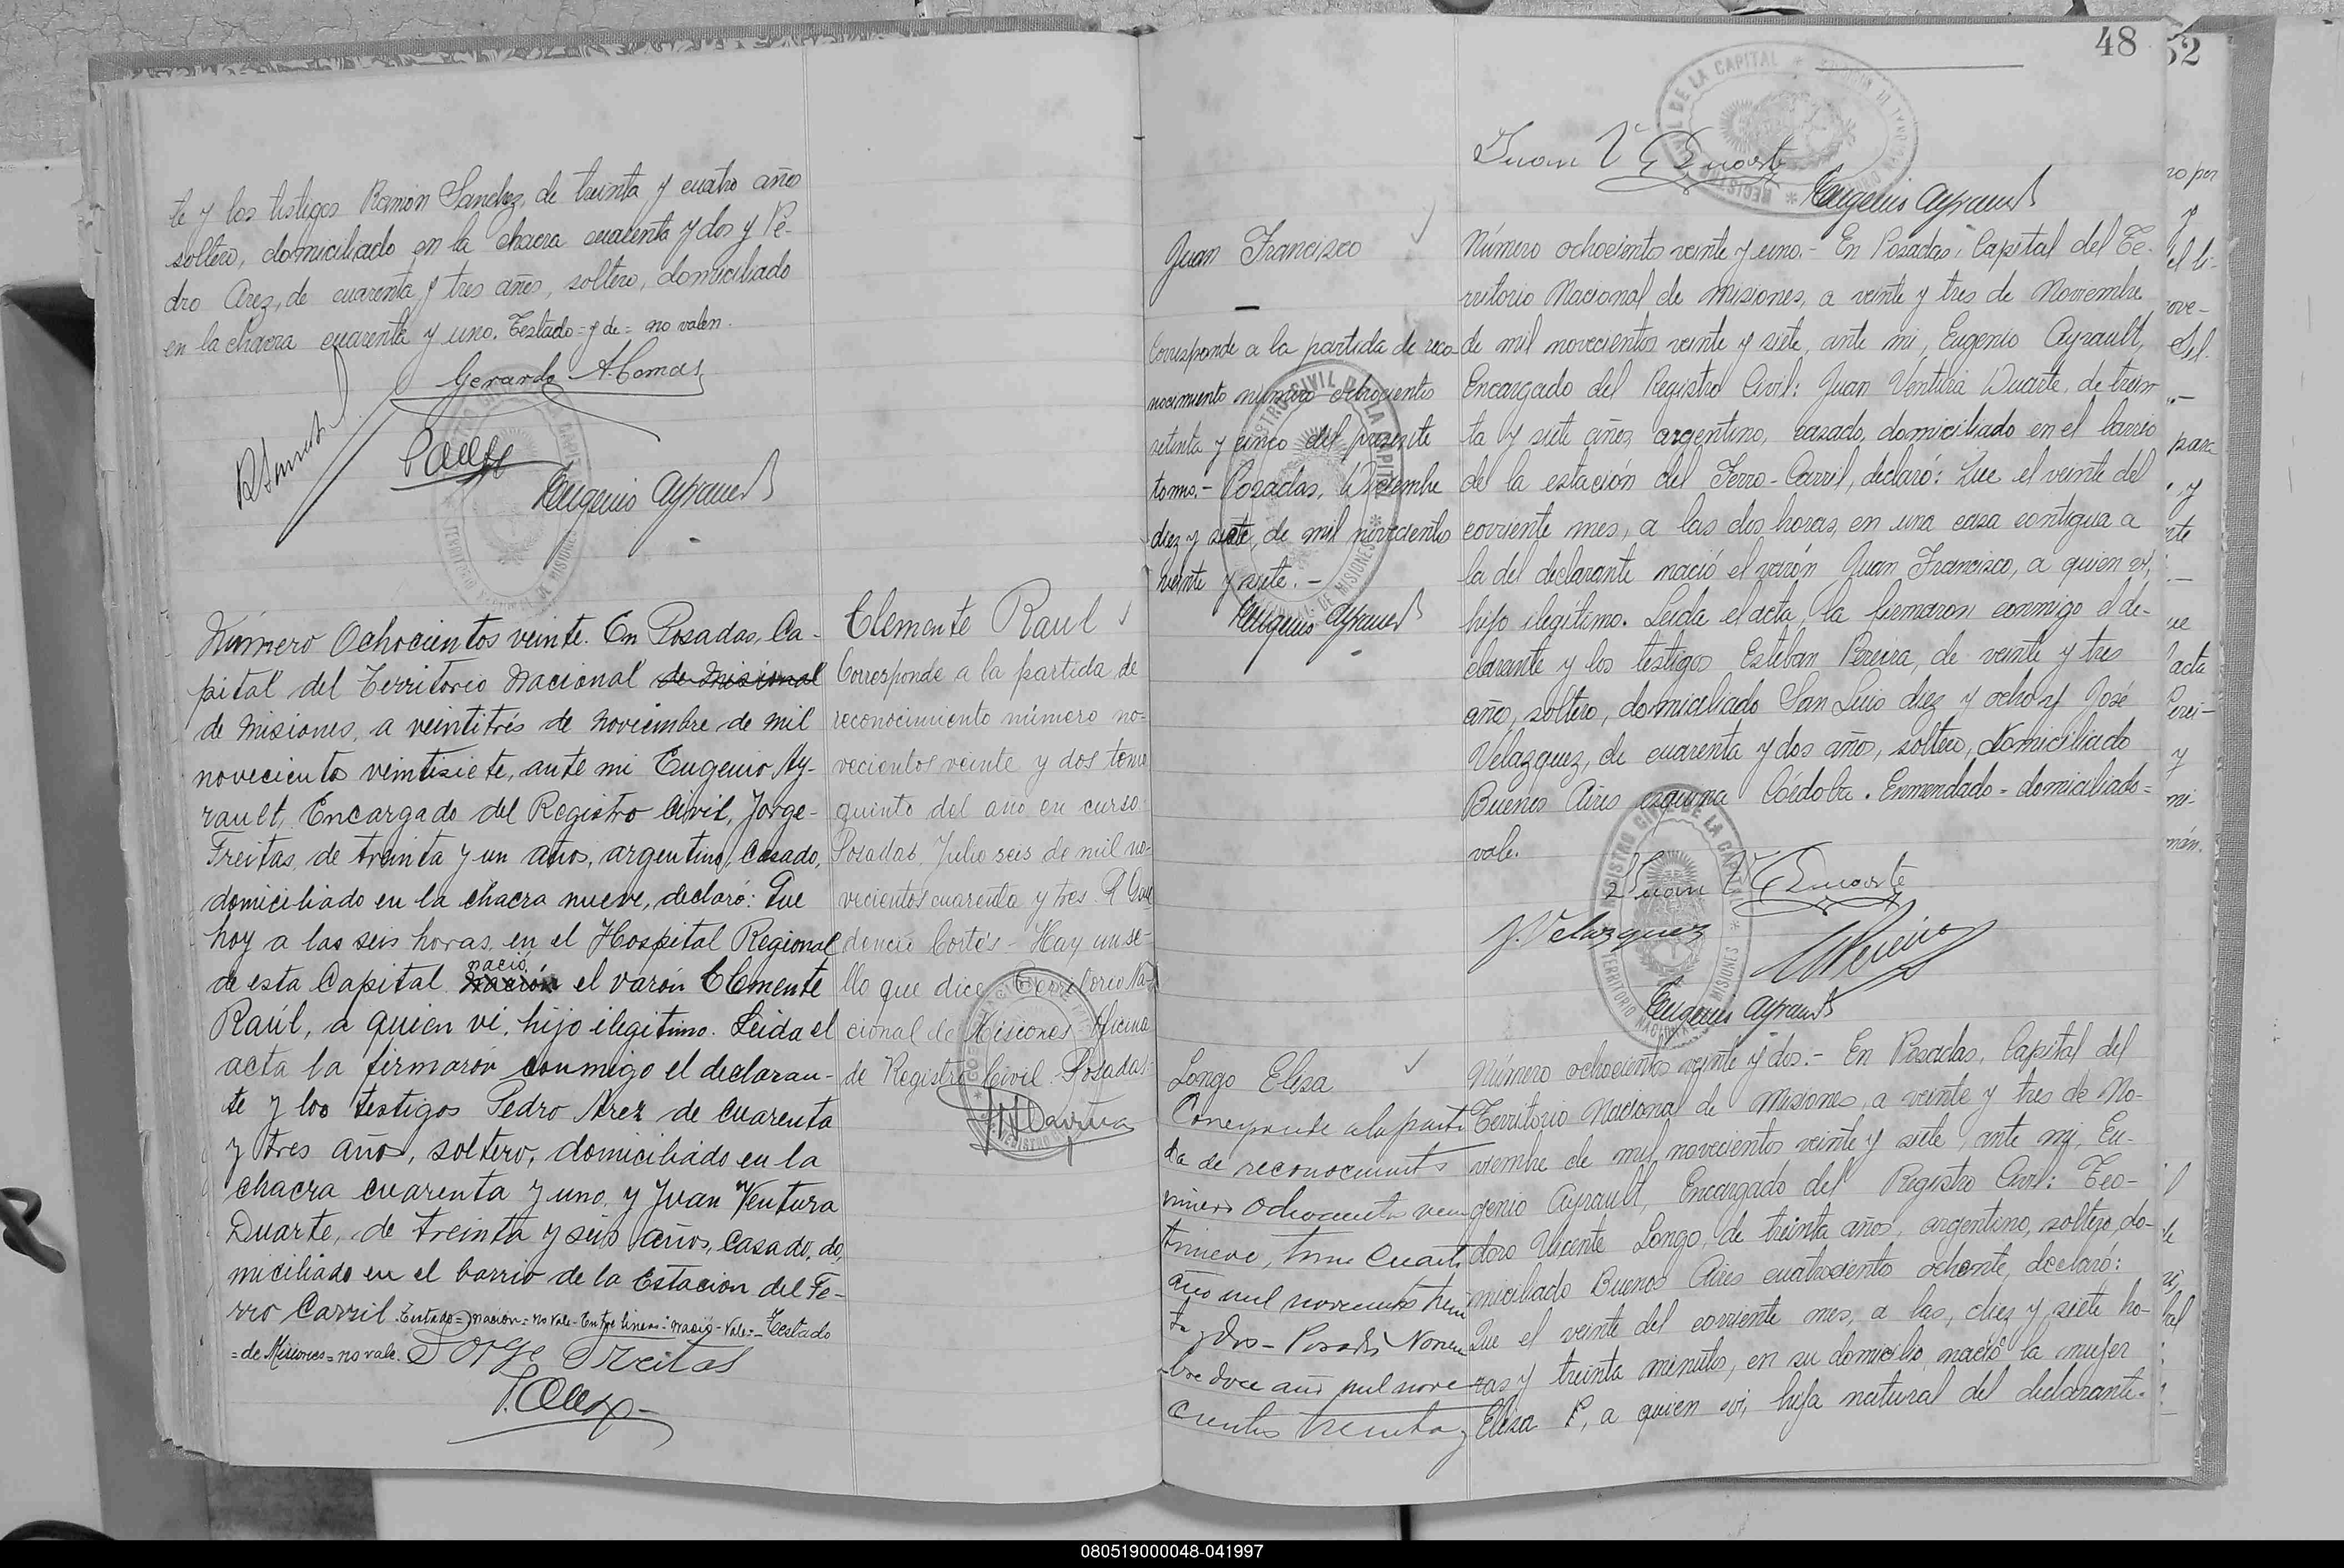 te y los testigos Ramón Sanchez, de treinta y cuatro años
soltero, domiciliado en la chacra cuarenta y dos y Pe-
dro Arez, de cuarenta y tres años, soltero, domiciliado
en la chacra cuarenta y uno. Testado = y de = no valen.
Gerardo A. Comas
Eugenio Ayrault
Número Ochocientos veinte. En Posadas, Ca-
pital del Territorio Nacional de Misional
de Misiones, a veintitrés de noviembre de mil
novecientos veintisiete, ante mi Eugenio Ay-
rault, Encargado del Registro Civil, Jorge
Freitas, de treinta y un años, argentino, casado,
domiciliado en la chacra nueve, declaró: Que
hoy a las seis horas, en el Hospital Regional
de esta Capital nació el varón Clemente
Raúl, a quien vi, hijo ilegitimo. Leida el
acta la firmaron conmigo el declaran-
te y los testigos Pedro Arez de cuarenta
y tres años, soltero, domiciliado en la
chacra cuarenta y uno, y Juan Ventura
Duarte, de treinta y seis años, casado, do
miciliado en el barrio de la Estacion del Fe-
rro Carril. Testado = nacion = no vale - Entre lineas = nació - Vale = - Testado
= de Misiones = no vale. Jorge Freitas
Clemente Raul
Corresponde a la partida de
reconocimiento número no-
vecientos veinte y dos tomo
quinto del año en curso
Posadas, Julio seis de mil no-
vecientos cuarenta y tres. P. Pru
dencio Cortés - Hay un se-
llo que dice Territorio Na-
cional de Misiones Oficina
de Registro Civil - Posadas
48
52
Juan V. Duarte
Eugenio Ayrault
Juan Francisco
Corresponde a la partida de reco-
nocimiento número ochocientos
setenta y cinco del presente
tomo. - Posadas, Diciembre
diez y siete, de mil novecientos
veinte y siete. -
Eugenio Ayrault
Número ochocientos veinte y uno. - En Posadas, Capital del Te-
rritorio Nacional de Misiones, a veinte y tres de Noviembre
de mil novecientos veinte y siete, ante mi, Eugenio Ayrault,
Encargado del Registro Civil: Juan Ventura Duarte, de trein
ta y siete años, argentino, casado, domiciliado en el barrio
de la estación del Ferro-Carril, declaró: Que el veinte del
corriente mes, a las dos horas, en una casa contigua a
la del declarante nació el varón Juan Francisco, a quien vi,
hijo ilegítimo. Leida el acta, la firmaron conmigo el de-
clarante y los testigos Esteban Pereira, de veinte y tres
años, soltero, domiciliado San Luis diez y ocho y José
Velazquez, de cuarenta y dos años, soltero, domiciliado
Buenos Aires esquina Córdoba. Enmendado = domiciliado =
vale.
Juan V. Duarte
J. Velazquez
Eugenio Ayrault
Longo Elisa
Corresponde a la parti
da de reconocimiento
número ochocientos vein
tinueve, tomo cuarto
año mil novecientos trein
ta y dos - Posadas Noviem
bre doce año mil nove
cientos treinta y
Número ochocientos veinte y dos. - En Posadas, Capital del
Territorio Nacional de Misiones, a veinte y tres de No-
viembre de mil novecientos veinte y siete, ante mi, Eu-
genio Ayrault, Encargado del Registro Civil: Teo-
doro Vicente Longo, de treinta años, argentino, soltero, do-
miciliado Buenos Aires cuatrociento ochente, declaró:
Que el veinte del corriente mes, a las, diez y siete ho-
ras y treinta minutos, en su domicilio, nació la mujer
Elisa P, a quien vi, hija natural del declarante.
080519000048-041997